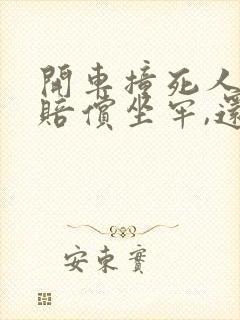 開車撞死人
賠償坐牢,還
安東實